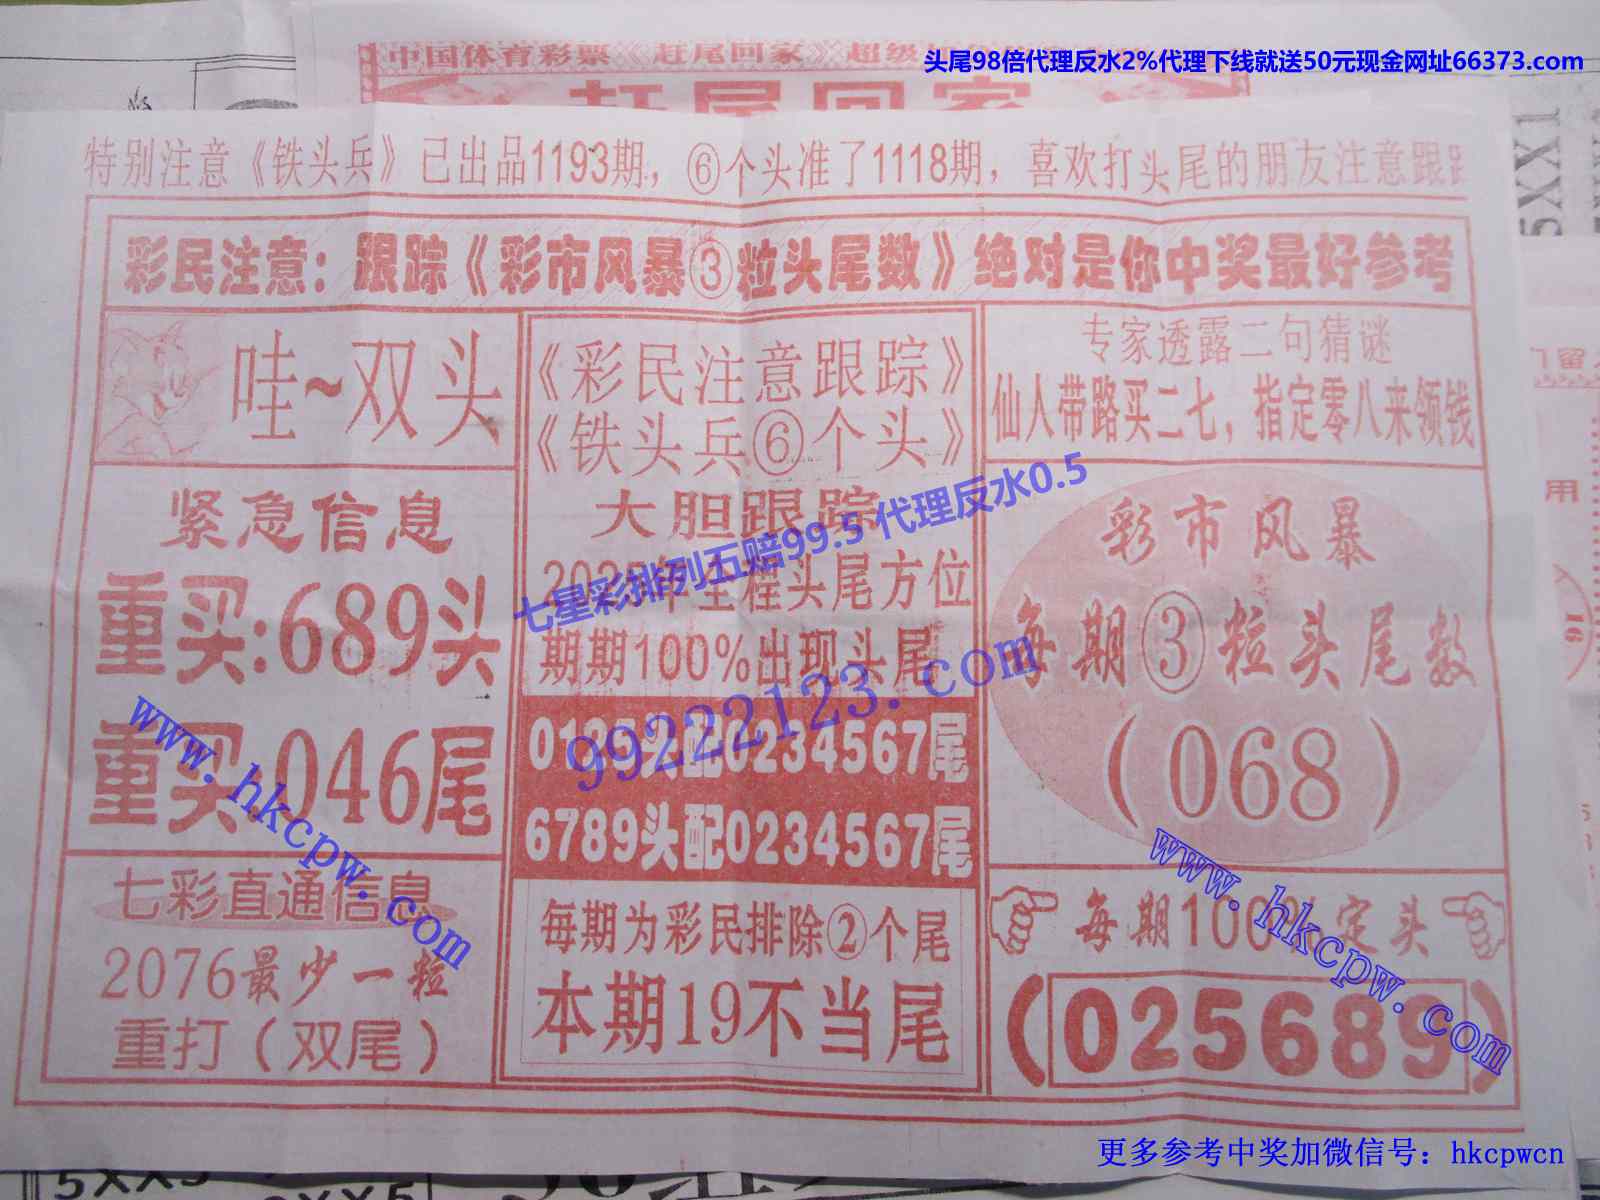 中国体育彩票《赶尾回家》超级
头尾98倍代理反水2%代理下线就送50元现金网址66373.com
赶尾回家
特别注意《铁头兵》已出品1193期，⑥个头准了1118期，喜欢打头尾的朋友注意跟
彩民注意：跟踪《彩市风暴③粒头尾数》绝对是你中奖最好参考
哇~双头
紧急信息
重买:689头
重买:046尾
七彩直通信息
2076最少一粒
重打（双尾）
《彩民注意跟踪》
《铁头兵⑥个头》
大胆跟踪
年全程头尾方位
期期100%出现头尾
头配0234567尾
6789头配0234567尾
每期为彩民排除②个尾
本期19不当尾
专家透露二句猜谜
仙人带路买二七，指定零八来领钱
彩市风暴
每期③粒头尾数
(068)
每期100%定头
(025689)
七星彩排列五赔99.5 代理反水0.5
99222123.com
www.hkcpw.com
www.hkcpw.com
更多参考中奖加微信号：hkcpwcn
5XX1
用
16
5XX5